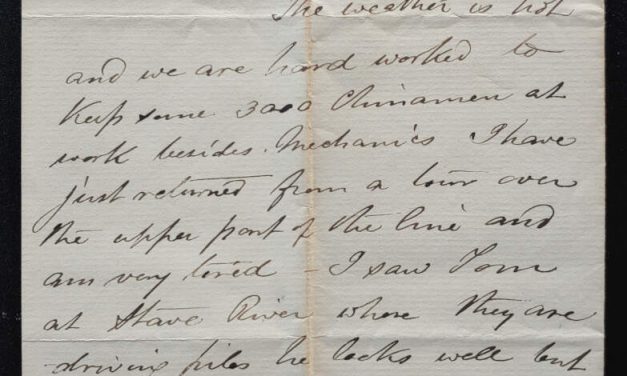 The weather is hot
and we are hard worked to
Keep some 3000 Chinamen at
work besides. Mechanics I have
just returned from a tour over
the upper part of the line and
am very tired - I saw Tom
at Stave River where they are
driving piles he looks well but